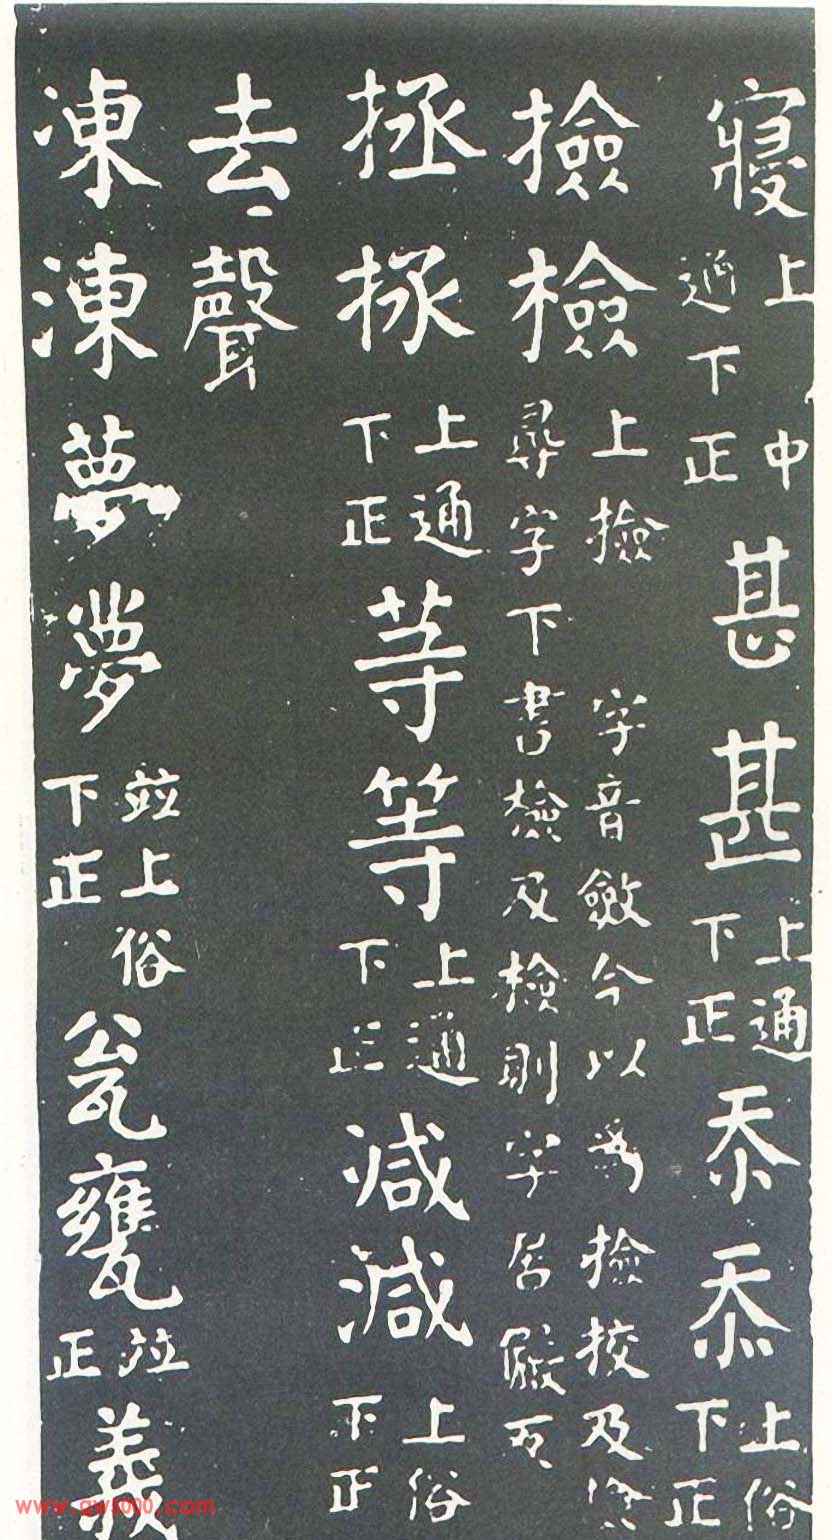 寢上中通下正甚甚上通下正忝忝上俗下正
撿檢上撿字音斂今以為撿挍及尋字下書檢及檢則字居儼反
拯拯上通下正䓁等上通下正减減上俗下正
去聲
凍涷夢夢並上俗下正瓮甕並正義
www.gw5000.com